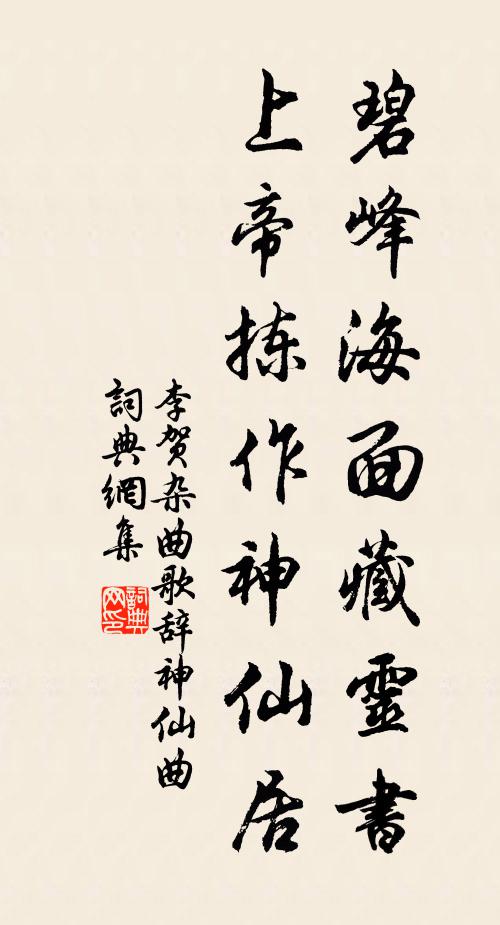 碧峰海面藏靈書
上帝拣作神仙居
李贺杂曲歌辞神仙曲
詞典網集
詞典
网印